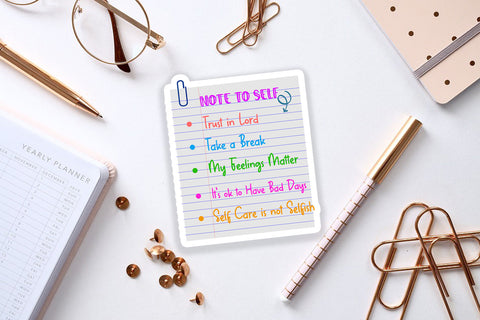 NOTE TO SELF
Trust in Lord
Take a Break
My Feelings Matter
It's ok to Have Bad Days
Self Care is not Selfish
YEARLY PLANNER